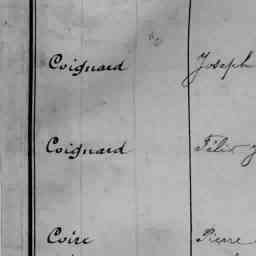 Coignard Joseph
Coignard Félix
Coire Pierre